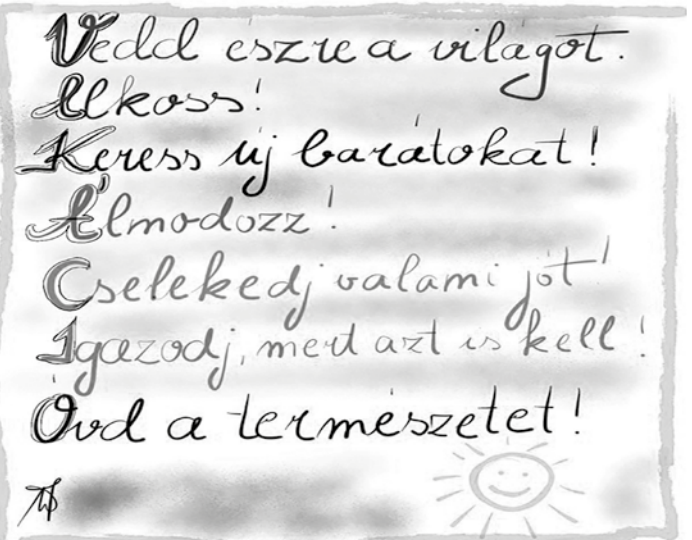 Vedd észre a világot.
Alkoss!
Keress új barátokat!
Álmodozz!
Cselekedj valami jót!
Igazodj, mert azt is kell!
Óvd a természetet!